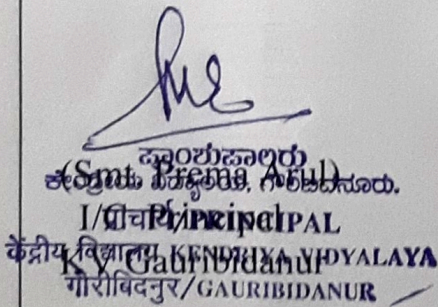 ಪ್ರಾಂಶುಪಾಲರು
(Smt. Prema Arul)
ಕೇಂದ್ರೀಯ ವಿದ್ಯಾಲಯ, ಗೌರಿಬಿದನೂರು.
I/C Principal
प्राचार्य/PRINCIPAL
केंद्रीय विद्यालय KENDRIYA VIDYALAYA
KV Gauribidanur
गौरीबिदनुर/GAURIBIDANUR